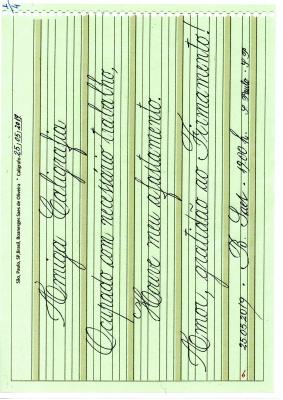 São, Paulo, SP, Brasil, Bozanerges Sans de Oliveira • Calígrafo 25.05.2019
Amiga Caligrafia
Ocupado com necessário trabalho,
Houve meu afastamento.
Amor, gratidão ao Firmamento!
25.05.2019 • 19:00 h. • S. Paulo • S P
6